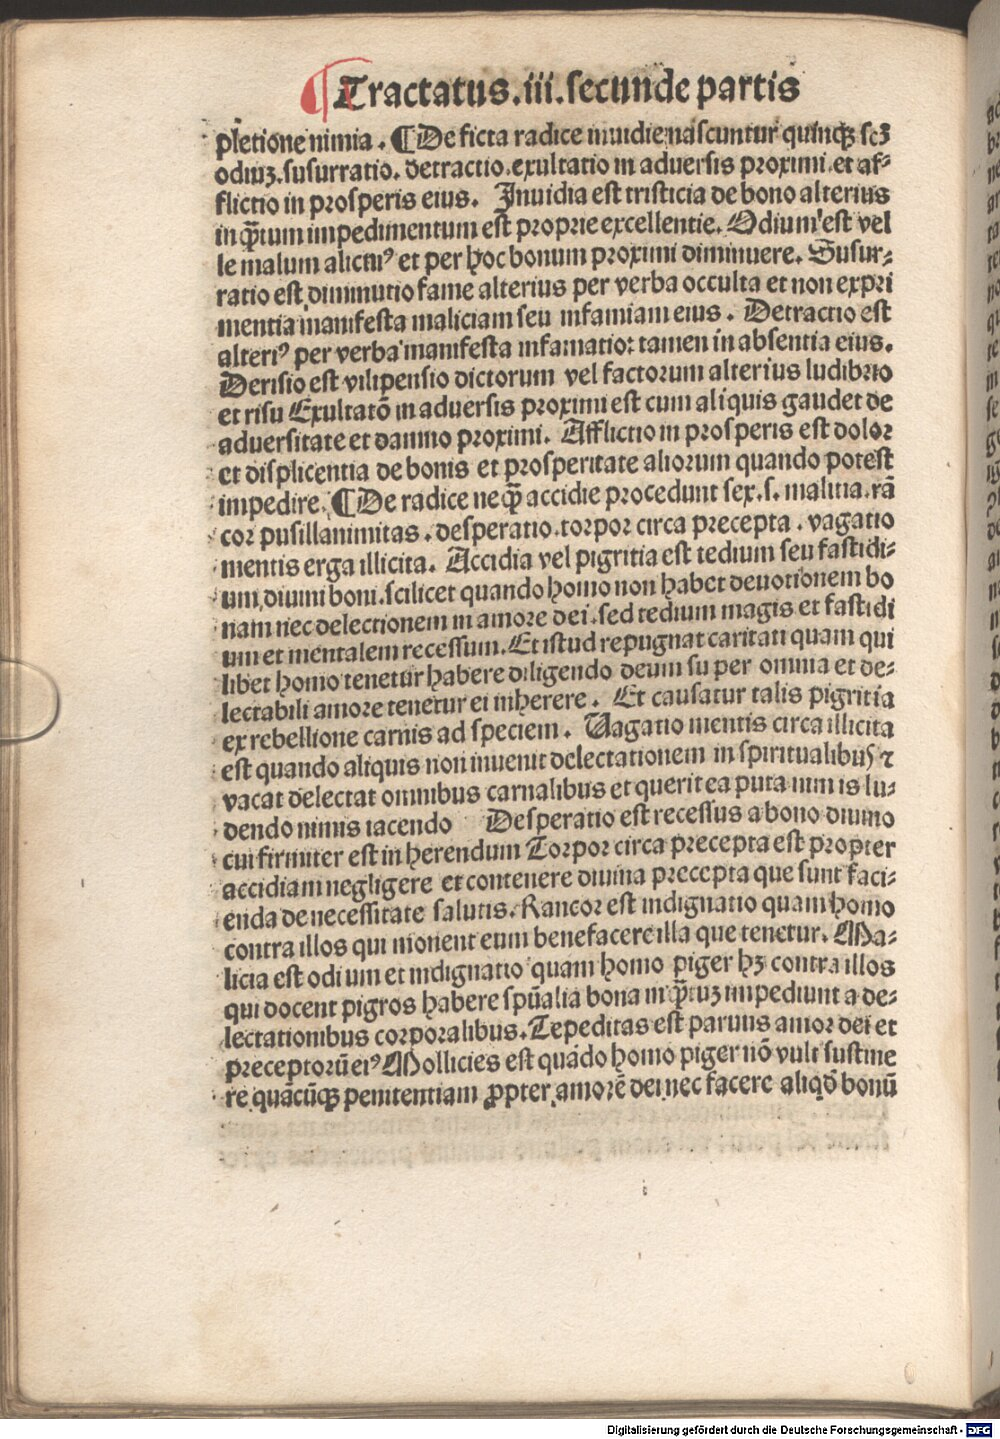 ¶ Tractatus.iii.secunde partis
pletione nimia. ¶ De ficta radice inuidie nascuntur quinqꝫ scꝫ
odiuꝫ.susurratio. detractio.exultatio in aduersis proximi.et af⸗
flictio in prosperis eius. Inuidia est tristicia de bono alterius
inqͣtum impedimentum est proprie excellentie. Odium est vel
le malum alicuiꝰ et per hoc bonum proximi diminuere. Susur⸗
ratio est diminutio fame alterius per verba occulta et non expri
mentia manifesta maliciam seu infamiam eius. Detractio est
alteriꝰ per verba manifesta infamatio: tamen in absentia eius.
Derisio est vilipensio dictorum vel factorum alterius ludibrio
et risu Exultatō in aduersis proximi est cum aliquis gaudet de
aduersitate et damno proximi. Afflictio in prosperis est dolor
et displicentia de bonis et prosperitate aliorum quando potest
impedire. ¶ De radice neqͣꝫ accidie procedunt sex.s. malitia.rā
cor pusillanimitas. desperatio.torpor circa precepta. vagatio
mentis erga illicita. Accidia vel pigritia est tedium seu fastidi⸗
um diuini boni.scilicet quando homo non habet deuotionem bo
nam nec delectionem in amore dei.sed tedium magis et fastidi
um et mentalem recessum. Et istud repugnat caritati quam qui
libet homo tenetur habere diligendo deum su per omnia et de⸗
lectabili amore tenetur ei inherere. Et causatur talis pigritia
ex rebellione carnis ad speciem. Uagatio mentis circa illicita
est quando aliquis non inuenit delectationem in spiritualibus ⁊
vacat delectat omnibus carnalibus et querit ea puta nim is lu⸗
dendo nimis iacendo Desperatio est recessus a bono diuino
cui firmiter est in herendum Torpor circa precepta est propter
accidiam negligere et contenere diuina precepta que sunt faci⸗
enda de necessitate salutis. Rancor est indignatio quam homo
contra illos qui monent eum benefacere illa que tenetur. Ma⸗
licia est odi um et indignatio quam homo piger hꝫ contra illos
qui docent pigros habere spūalia bona inqͣꝫtuꝫ impediunt a de⸗
lectationibus corporalibus. Tepeditas est paruus amor dei et
preceptorū eiꝰ Mollicies est quādo homo piger nō vult sustine
re quācūqꝫ penitentiam ꝓpter amorē dei nec facere aliqd̄ bonū
Digitalisierung gefördert durch die Deutsche Forschungsgemeinschaft - DFG